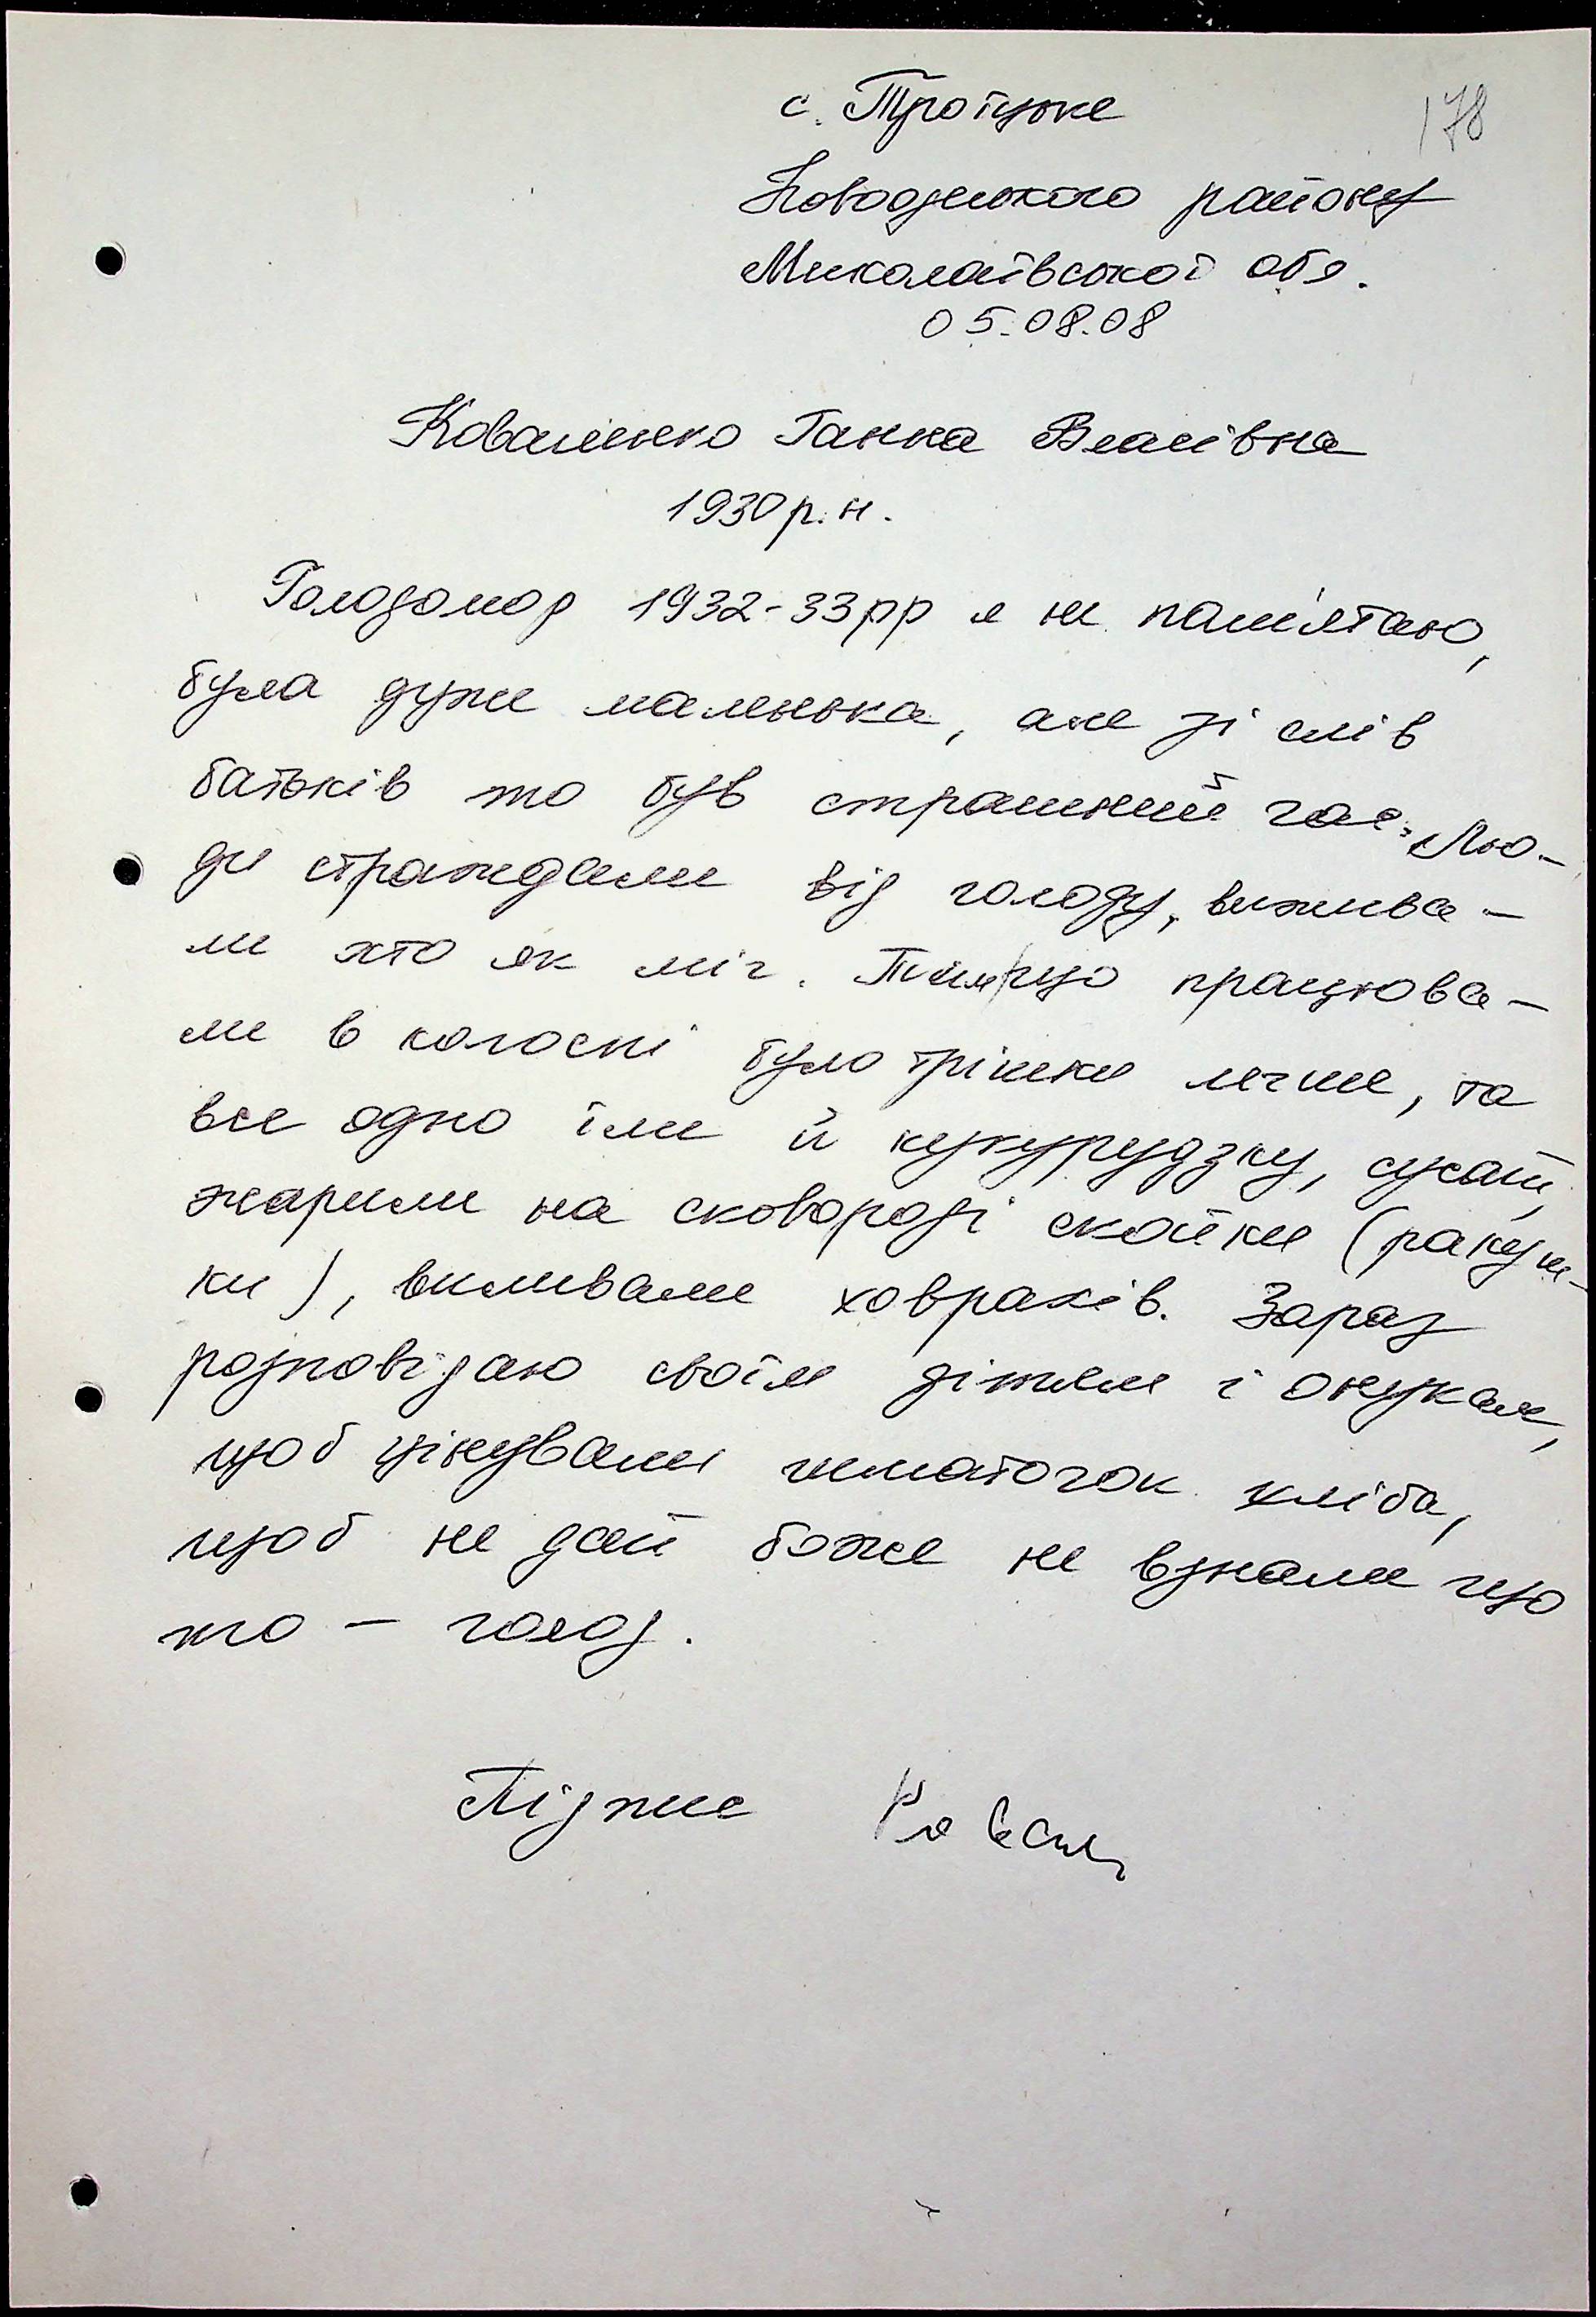 с. Троїцьке
178
Новоодеського району
Миколаївської обл.
05.08.08
Коваленко Ганна Власівна
1930 р.н.
Голодомор 1932-33рр я не пам'ятаю,
була дуже маленька, але зі слів
батьків то був страшний час. Лю-
ди страждали від голоду, вижива-
ли хто як міг. Тим що працюва-
ли в колоспі було трішки легше, та
все одно їли й кукурудзку, сухай,
жарили на сковороді скойки (ракуш-
ки), виливали ховрахів. Зараз
розповідаю своїм дітям і онукам,
щоб цінували шматочок хліба,
щоб не дай боже не взнали що
то – голод.
Підпис Ковал